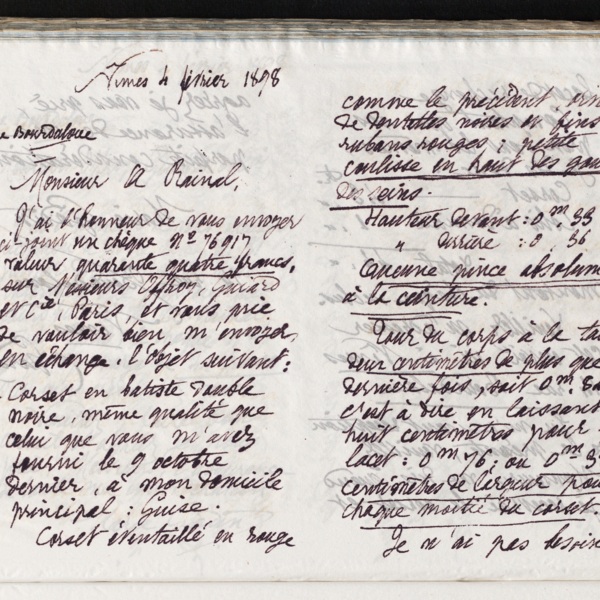 Nimes 4 février 1898
e Bourdaloue
Monsieur A Rainal,
J'ai l'honneur de vous envoyer
ci-joint un chèque Nº 76917
valeur quarante quatre francs,
sur Messieurs Offroy, Guiard
et Cie, Paris, et vous prie
de vouloir bien m'envoyer,
en échange, l'objet suivant:
Corset en batiste double
noire, même qualité que
celui que vous m'avez
fourni le 9 octobre
dernier, à mon domicile
principal: Guise.
Corset éventaillé en rouge
comme le précédent, orn
de dentelles noires et fins
rubans rouges; petite
coulisse en haut des gou
des seins.
Hauteur devant: 0m,33
" derrière: 0, 36
Aucune pince absolum
à la ceinture.
Tour du corps à la tai
deux centimètres de plus que
dernière fois, soit 0m,84
c'est à dire en laissant
huit centimètres pour
lacet: 0m76, ou 0m3
centimètres de largeur pou
chaque moitié du corset.
Je n'ai pas besoin